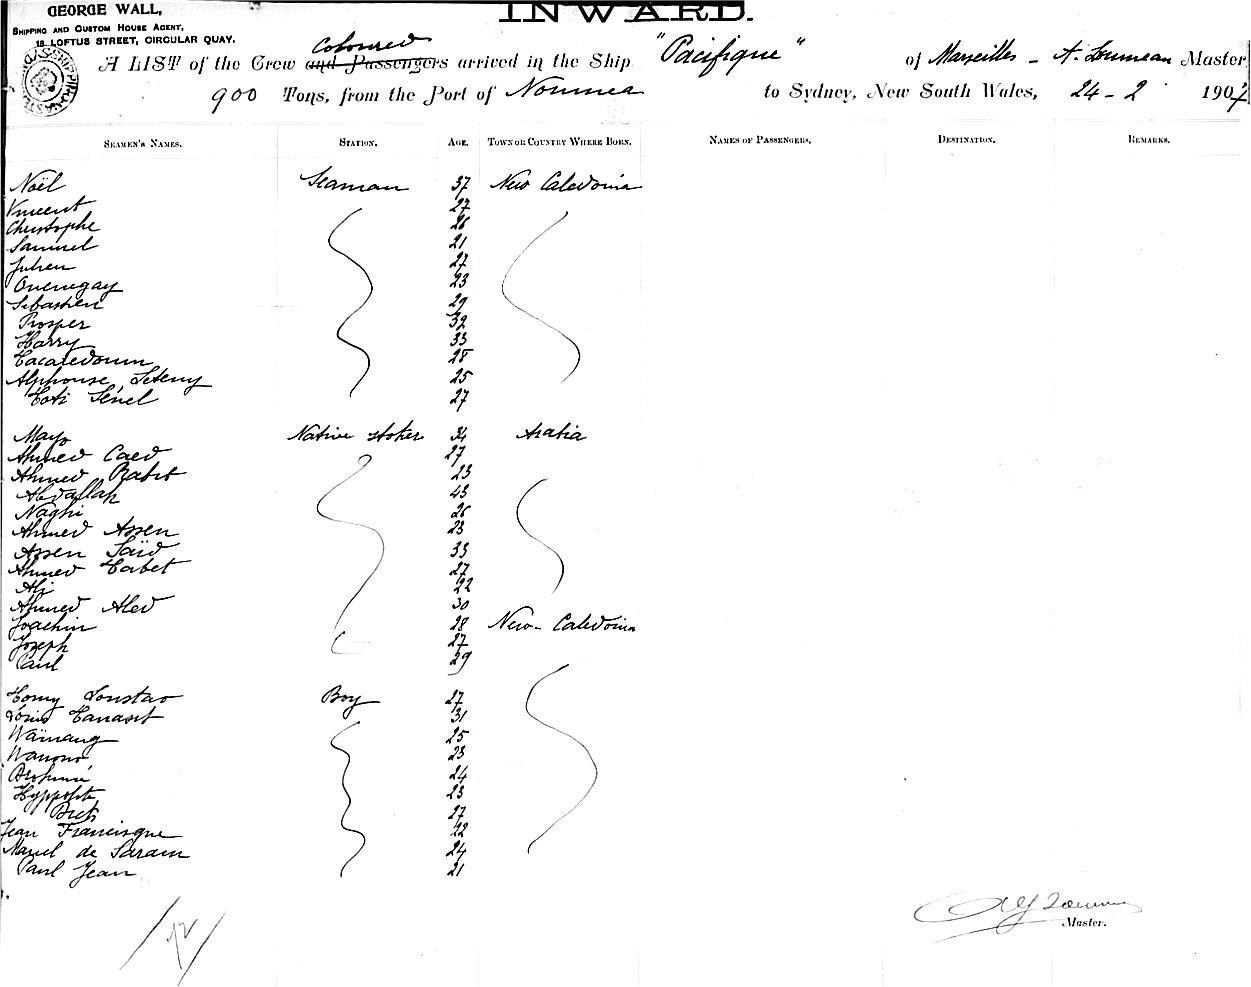 GEORGE WALL,
SHIPPING AND CUSTOM HOUSE AGENT,
18 LOFTUS STREET, CIRCULAR QUAY.
INWARD.
Coloured
A LIST of the Crew and Passengers arrived in the Ship "Pacifique" of Marseilles - A. Loumeau Master
900 Tons, from the Port of Noumea to Sydney, New South Wales, 24 - 2 1907
SEAMEN'S NAMES. STATION. AGE. TOWN OR COUNTRY WHERE BORN. NAMES OF PASSENGERS. DESTINATION. REMARKS.
Noël Seaman 37 New Caledonia
Vincent 27
Christophe 26
Samuel 21
Julien 27
23
Sebastien 29
Prosper 32
Harry 33
28
Alphonse 25
27
Mayo Native stoker 34 Arabia
Ahmed Caed 27
Ahmed Rabet 23
Abdallah 43
Naghi 26
Ahmed Assen 23
Assen Saïd 33
Ahmed Tabet 27
Ali 22
Ahmed Aled 30
Joachin 28 New-Caledonia
Joseph 27
Paul 29
Tomy Loustao Boy 27
Louis 31
25
23
24
Hyppolite 23
Dick 27
Jean Francisque 22
de Saram 24
Paul Jean 21
Master.